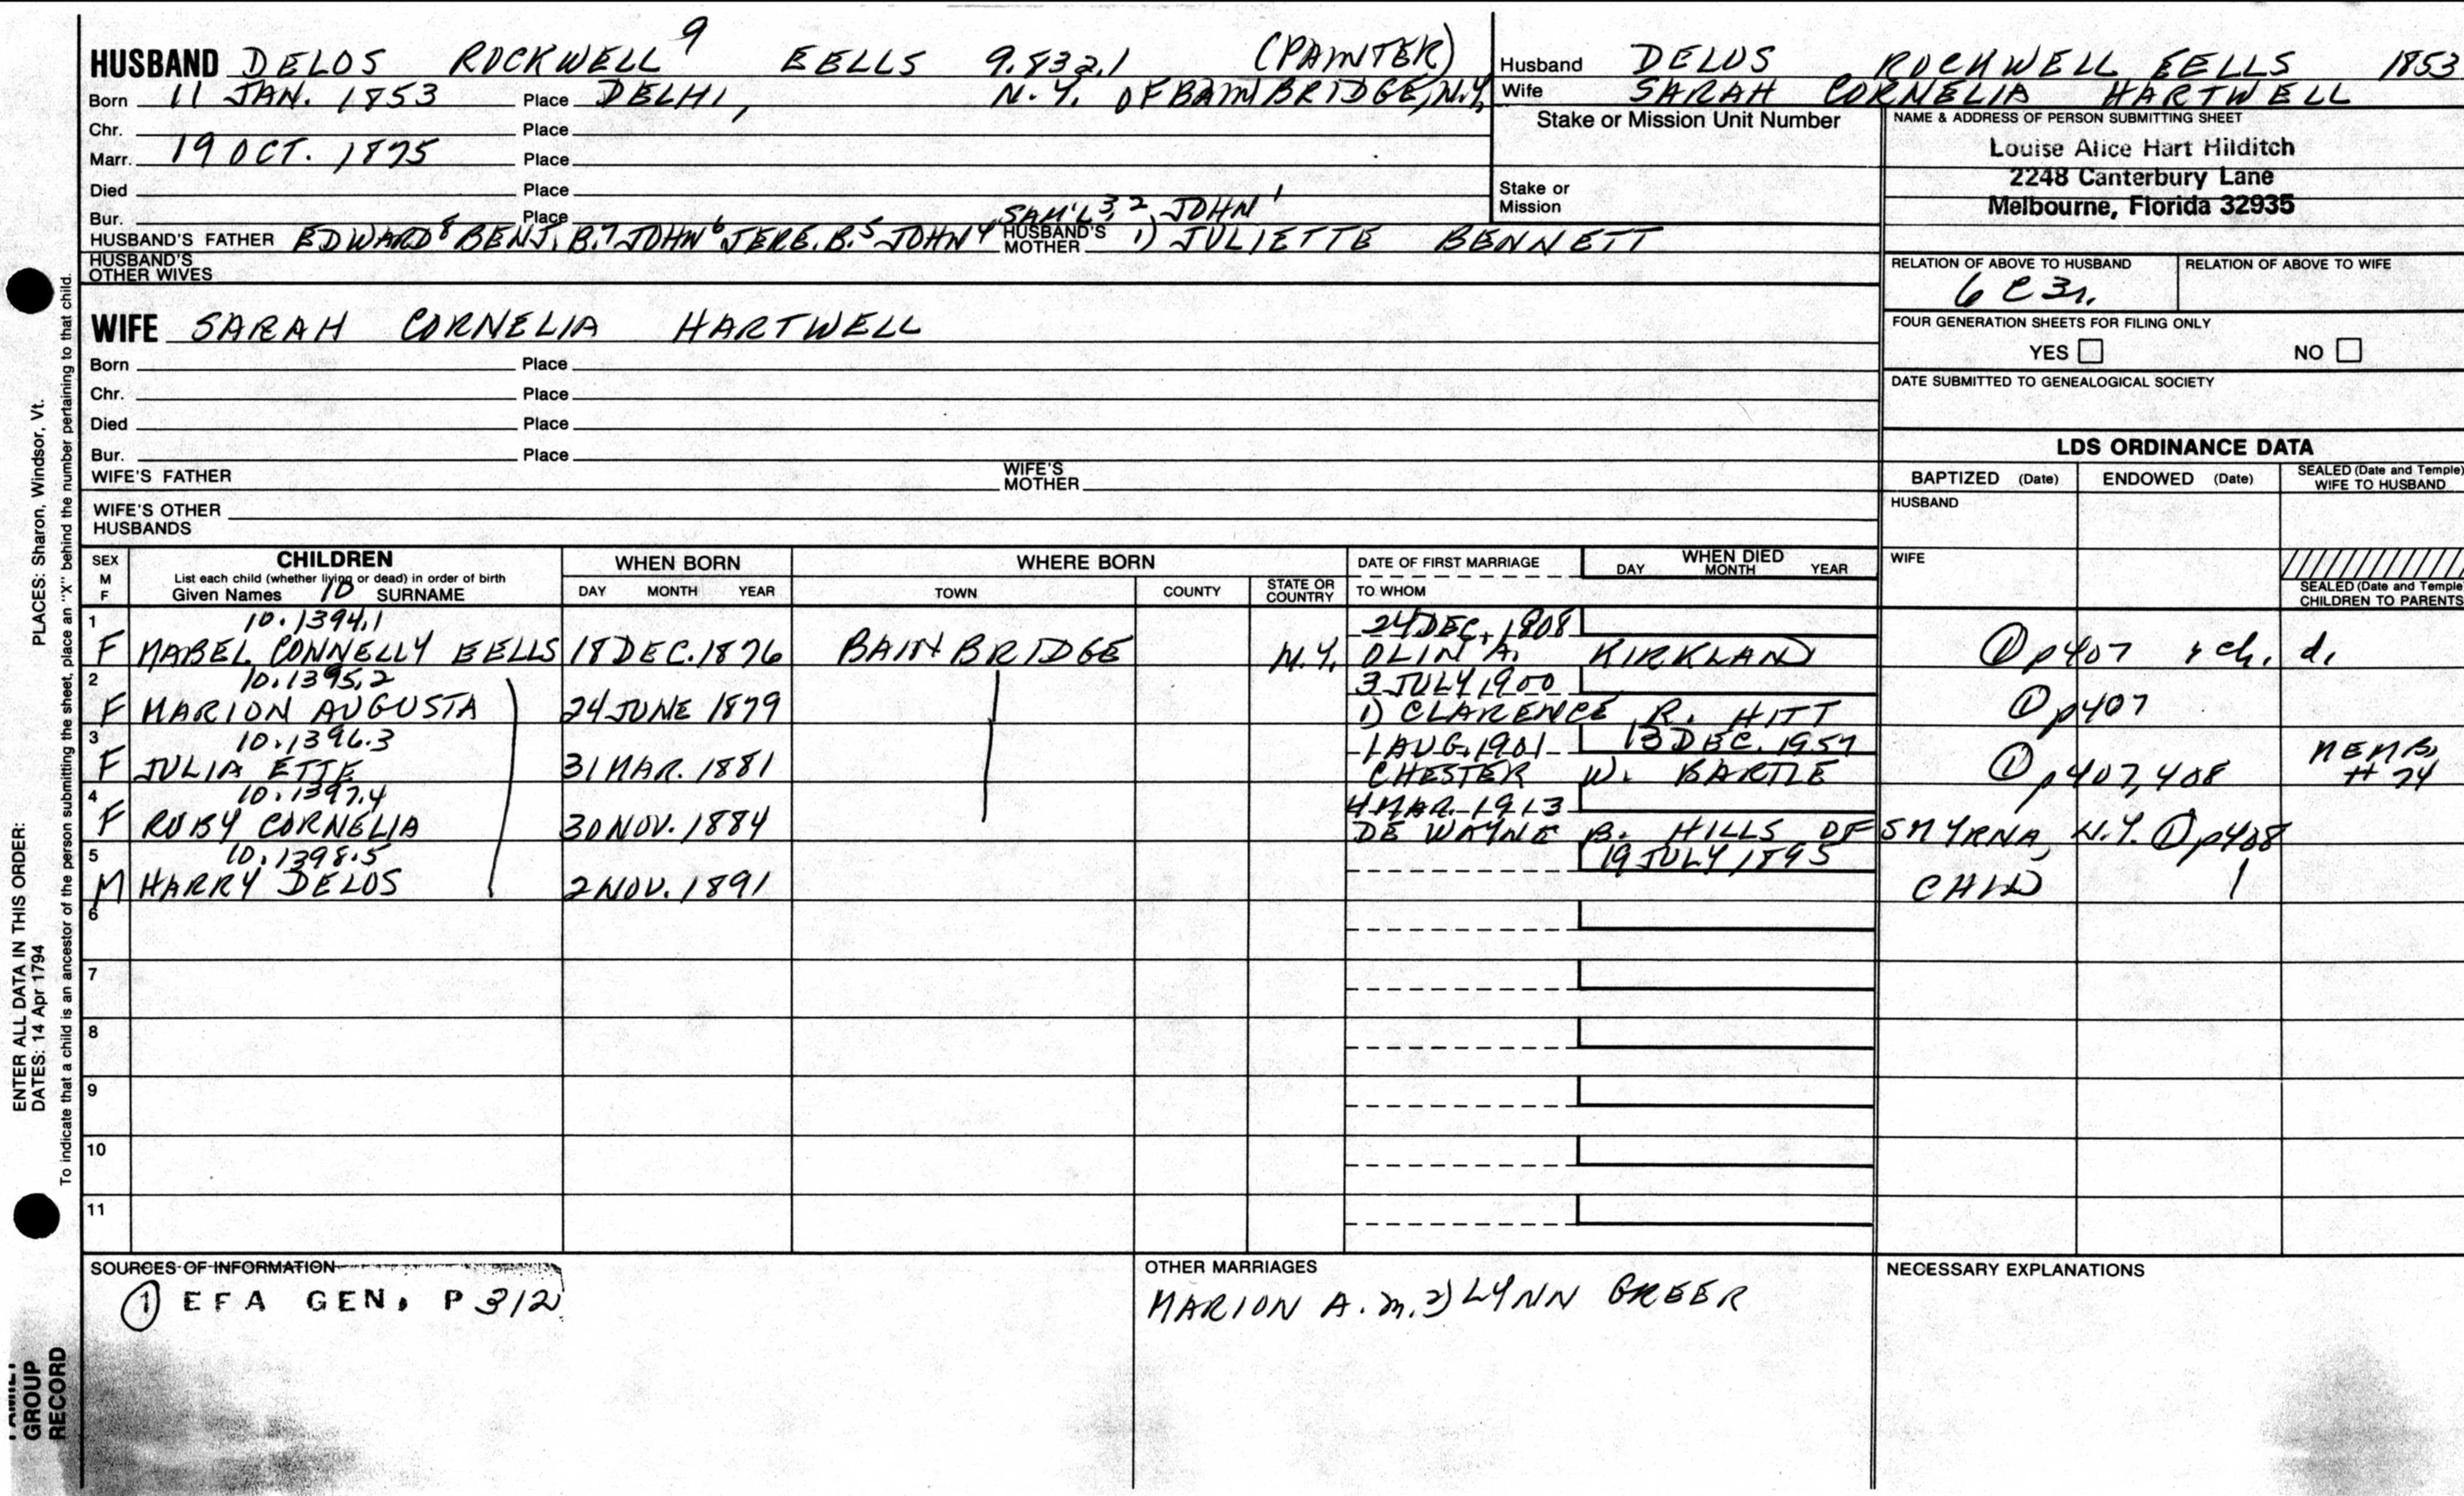 HUSBAND DELOS ROCKWELL 9 EELLS 9.832.1 (PAINTER)
Born 11 JAN. 1853 Place DELHI, N.Y. OF BAINBRIDGE, N.Y.
Chr. Place
Marr. 19 OCT. 1875 Place
Died Place
Bur. Place SAM'L 3, 2, JOHN 1
HUSBAND'S FATHER EDWARD 8 BENJ. B. 7 JOHN 6 JERE. B. 5 JOHN 4 HUSBAND'S MOTHER 1) JULIETTE BENNETT
HUSBAND'S OTHER WIVES
Husband DELOS ROCKWELL EELLS 1853
Wife SARAH CORNELIA HARTWELL
Stake or Mission Unit Number
Stake or Mission
NAME & ADDRESS OF PERSON SUBMITTING SHEET
Louise Alice Hart Hilditch
2248 Canterbury Lane
Melbourne, Florida 32935
RELATION OF ABOVE TO HUSBAND RELATION OF ABOVE TO WIFE
6 C 3r.
FOUR GENERATION SHEETS FOR FILING ONLY
YES NO
DATE SUBMITTED TO GENEALOGICAL SOCIETY
WIFE SARAH CORNELIA HARTWELL
Born Place
Chr. Place
Died Place
Bur. Place
WIFE'S FATHER WIFE'S MOTHER
WIFE'S OTHER HUSBANDS
LDS ORDINANCE DATA
BAPTIZED (Date) ENDOWED (Date) SEALED (Date and Temple) WIFE TO HUSBAND
HUSBAND
WIFE
SEALED (Date and Temple) CHILDREN TO PARENTS
SEX M F CHILDREN WHEN BORN WHERE BORN DATE OF FIRST MARRIAGE WHEN DIED
List each child (whether living or dead) in order of birth DAY MONTH YEAR
Given Names 10 SURNAME DAY MONTH YEAR TOWN COUNTY STATE OR COUNTRY TO WHOM
1 10.1394.1 24 DEC. 1908
F MABEL CONNELLY EELLS 18 DEC. 1876 BAINBRIDGE N.Y. OLIN A. KIRKLAND ① p407 & ch. d.
2 10.1395.2 3 JULY 1900
F MARION AUGUSTA 24 JUNE 1879 1) CLARENCE R. HITT ① p407
3 10.1396.3 1 AUG. 1901 13 DEC. 1957
F JULIA ETTE 31 MAR. 1881 CHESTER W. BARTLE ① p407, 408 MEMB. # 74
4 10.1397.4 4 MAR. 1913
F RUBY CORNELIA 30 NOV. 1884 DE WAYNE B. HILLS OF SMYRNA, N.Y. ① p408
5 10.1398.5 19 JULY 1895
M HARRY DELOS 2 NOV. 1891 CHILD
6
7
8
9
10
11
SOURCES OF INFORMATION
① EFA GEN. P 312
OTHER MARRIAGES
MARION A. m. 2) LYNN GREER
NECESSARY EXPLANATIONS
ENTER ALL DATA IN THIS ORDER:
DATES: 14 Apr 1794 PLACES: Sharon, Windsor, Vt.
To indicate that a child is an ancestor of the person submitting the sheet, place an "X" behind the number pertaining to that child.
FAMILY
GROUP
RECORD